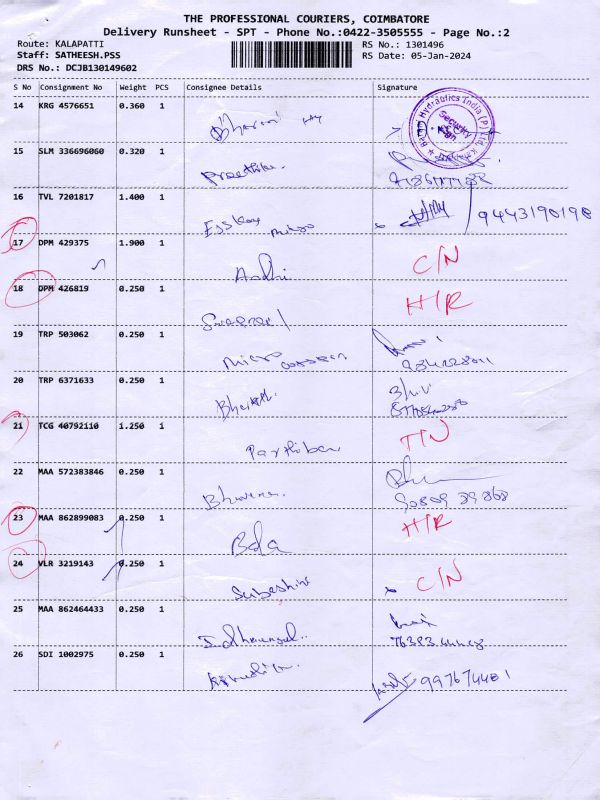 THE PROFESSIONAL COURIERS, COIMBATORE
Delivery Runsheet - SPT - Phone No.:0422-3505555 - Page No.:2
Route: KALAPATTI
RS No.: 1301496
Staff: SATHEESH.PSS
RS Date: 05-Jan-2024
DRS No.: DCJB130149602
S No Consignment No Weight PCS Consignee Details Signature
14 KRG 4576651 0.360 1
Hydraulics India (P) Ltd
Security
Sign
15 SLM 336696060 0.320 1 Preethika.
16 TVL 7201817 1.400 1 Esskay micro 9443190198
17 DPM 429375 1.900 1 Andhi C/N
18 DPM 426819 0.250 1 H/R
19 TRP 503062 0.250 1 micro
20 TRP 6371633 0.250 1 Bharath.
21 TCG 40792110 1.250 1 Parthiban T/N
22 MAA 572383846 0.250 1 Bhuvana. 90809 39868
23 MAA 862899083 0.250 1 Bala H/R
24 VLR 3219143 0.250 1 C/N
25 MAA 862464433 0.250 1
26 SDI 1002975 0.250 1